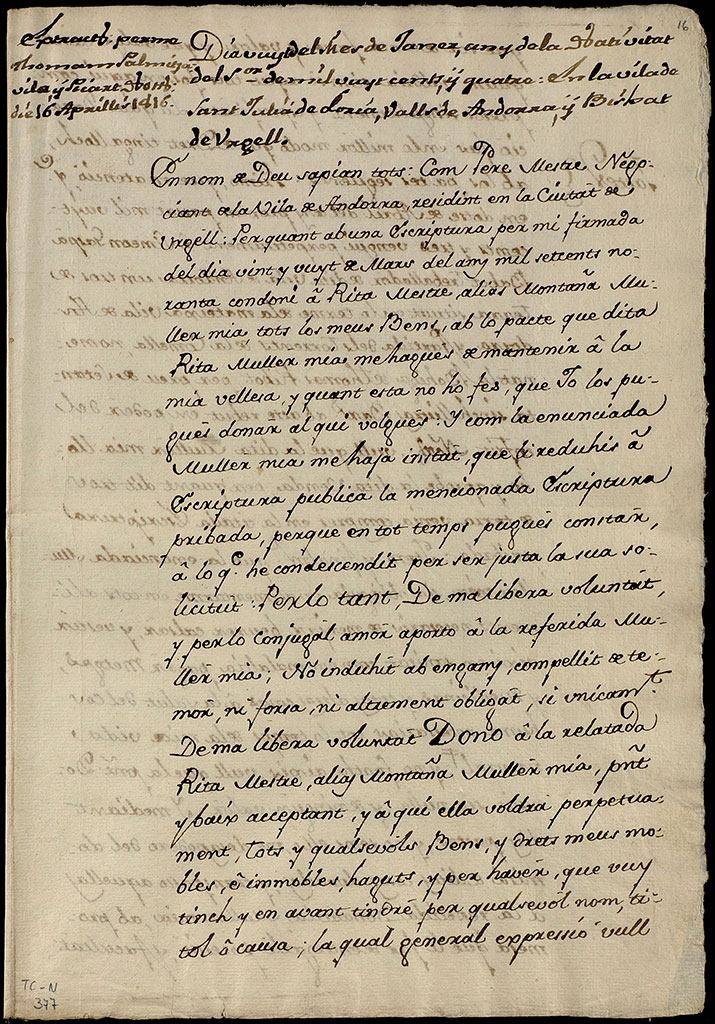 16
Extractũ per me
Thomam Palmitja
vila, ÿ Picart Nott.
die 16 Aprillis 1816.
Dia vuyt del mes de Janer, any de la Nativitat
del S.or de mil vuyt cents, ÿ quatre: En la vila de
Sant Juliá de Loria, Valls de Andorra, ÿ Bisbat
de Urgell.
En nom de Deu sapian tots: Com Pere Mestre Nego-
ciant de la Vila de Andorra, residint en la Ciutat de
Urgell: Per quant ab una Escriptura per mi firmada
del dia vint y vuyt de Mars del any mil setcents no-
ranta condoní â Rita Mestre, alias Montaña Mu-
ller mia, tots los meus Bens, ab lo pacte que dita
Rita Muller mia me hagues de mantenir â la
mia vellesa, y quant esta no ho fes, que Jo los pu-
gués donar al qui volgues: Y com la enunciada
Muller mia me haja instat, que li reduhis â
Escriptura publica la mencionada Escriptura
pribada, perque en tot temps pugués constar,
â lo q.e he condescendit per ser justa la sua so-
licitut: Per lo tant, De ma libera voluntat,
y per lo conjugal amor aporto â la referida Mu-
ller mia; No induhit ab engany, compellit de te-
mor, ni forsa, ni altrement obligat, si unicam.t
De ma libera voluntat Dono â la relatada
Rita Mestre, alias Montaña Muller mia, pñt
y baix acceptant, y â qui ella voldrá perpetua-
ment, tots y qualsevols Bens, y drets meus mo-
bles, ê immobles, haguts, y per havér, que vuy
tinch y en avant tindré per qualsevol nom, ti-
tol ô causa; la qual general expressió vull
TC-N
377